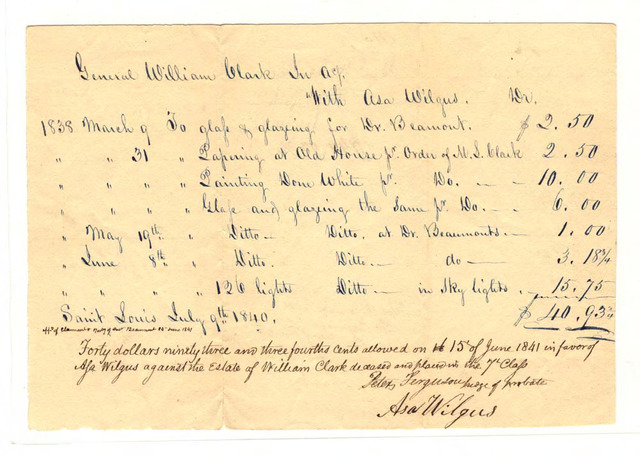 General William Clark In a/c.
With Asa Wilgus. Dr.
1838 March 9 To glass & glazeing for Dr. Beamont. $ 2.50
" " 31 " Papering at Old House pr. Order of M. L. Clark 2.50
" " " " Painting Done White pr. Do. — — 10.00
" " " " Glass and glazeing the Same pr Do. — 6.00
" May 19th " Ditto — Ditto. at Dr. Beaumonts — 1.00
" June 8th " Ditto. Ditto. — do — 3.18¾
" " " " 126 lights Ditto — in Sky lights. 15.75
Saint Louis July 9th 1840. $ 40.93¾
Forty dollars ninety three and three fourths cents allowed on 15th of June 1841 in favor of
Asa Wilgus against the Estate of William Clark deceased and placed in the 7th Class
Peter Ferguson Judge of Probate
Asa Wilgus